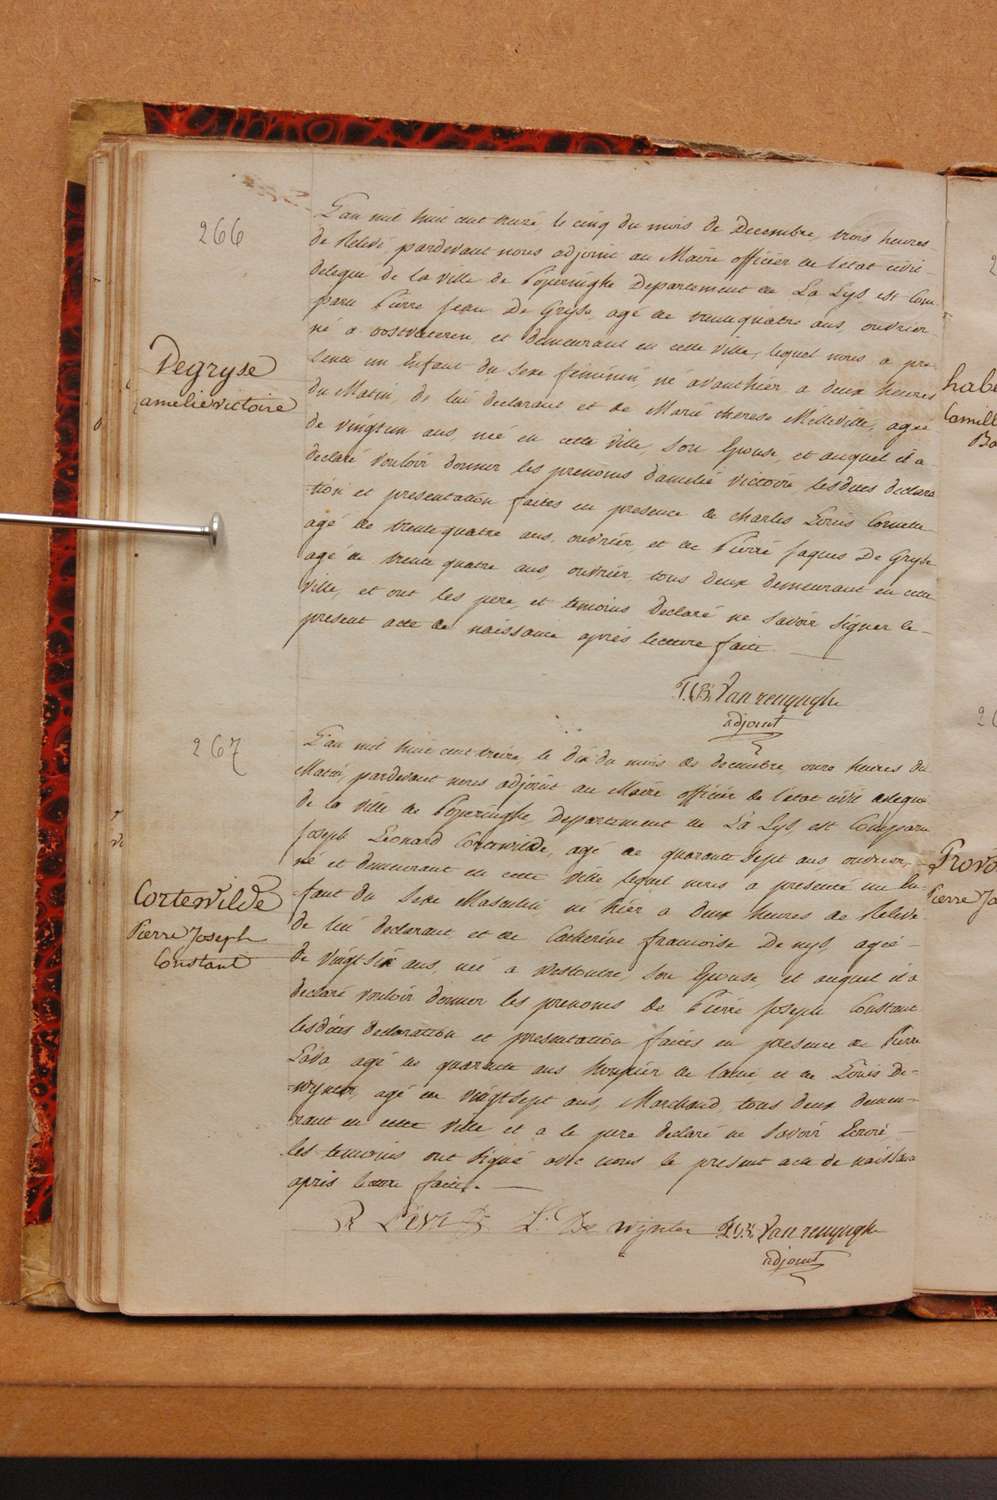 266
Degryse
amelie victoire
L'an mil huit cent treize, le cinq du mois de Decembre, trois heures
de Relevé pardevant nous adjoint au Maire officier de l'etat civil
delegue de la ville de Poperinghe Departement de La Lys est Com
paru Pierre Jean De Gryse, agé de trente quatre ans, ouvrier
né a oostvleteren et demeurant en cette ville, lequel nous a pre
senté un Enfant du sexe feminin, né avanthier a deux heures
du Matin, de lui declarant et de Marie therese Melleville, agée
de vingtun ans, née en cette ville, son Epouse, et auquel il a
declaré vouloir donner les prenoms d'amelie victoire lesdites declara
tion et presentation faites en presence de charles Louis Cornette
agé de trente quatre ans, ouvrier, et de Pierre Jaques De Gryse
agé de trente quatre ans, ouvrier, tous deux demeurant en cette
ville, et ont les pere, et temoins declaré ne savoir signer le
present acte de naissance après lecture faite
Van renynghe
adjoint
267
Cortewilde
Pierre Joseph
Constant
L'an mil huit cent treize, le dix du mois de decembre, onze heures du
Matin, pardevant nous adjoint au Maire officier de l'etat civil delegué
de la ville de Poperinghe, Departement de La Lys, est Comparu
Joseph Léonard Cortewilde, agé de quarante sept ans ouvrier,
né et demeurant en cette ville lequel nous a presenté un En-
fant du Sexe Masculin né hier a deux heures de Relevé
de lui declarant et de Catherine francoise Denys, agée
de vingt six ans, née a westoutre, son Epouse et auquel il a
declaré vouloir donner les prenoms de Pierre Joseph Constant
lesdites declaration et presentation faites en presence de Pierre
agé de quarante ans et de Louis De-
wynter, agé de vingtsept ans, Marchand, tous deux demeu-
rant en cette ville et a le pere declaré ne Savoir Ecrire
les temoins ont Signé avec nous le present acte de naissance
après lecture faite.
L. De wynter Van renynghe
adjoint
Camill
Provo
Pierre Ja